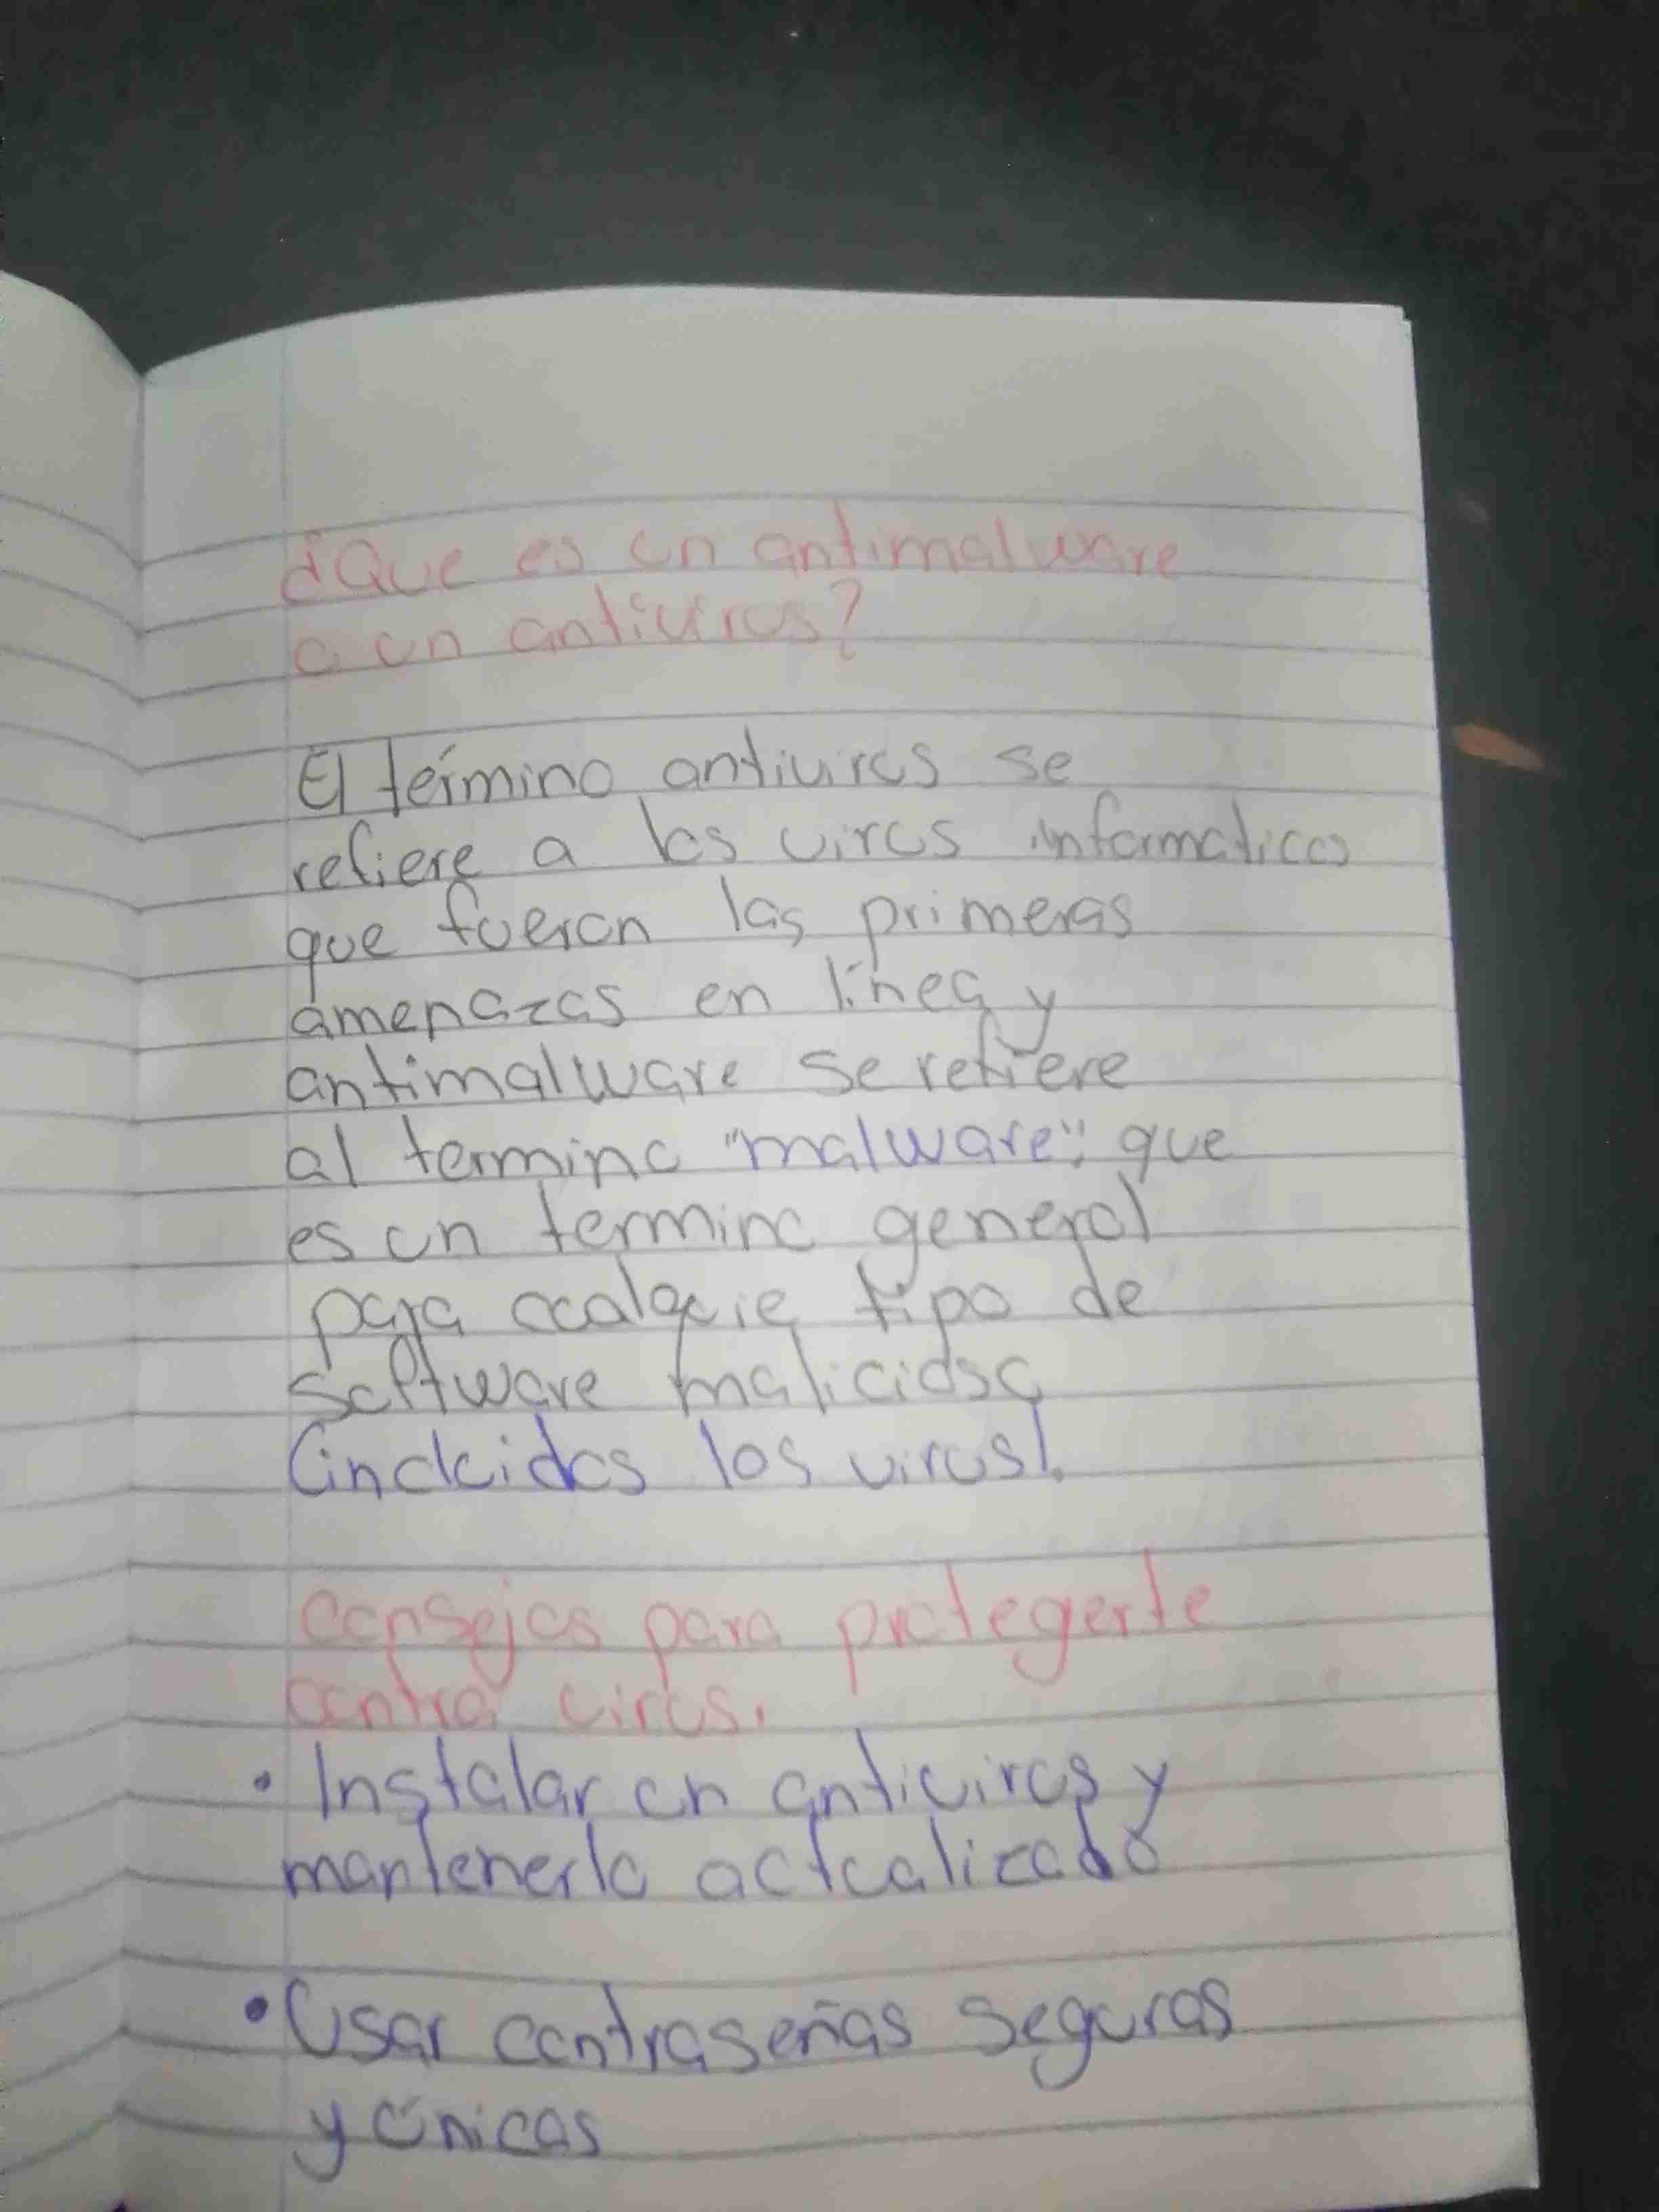 ¿Que es un antimalware
o un antivirus?
El término antivirus se
refiere a los virus informaticos
que fueron las primeras
amenazas en línea y
antimalware se refiere
al termino "malware", que
es un termino general
para cualquie tipo de
software malicioso
(incluidos los virus).
Consejos para protegerte
contra virus.
• Instalar un antivirus y
mantenerlo actualizado
• Usar contraseñas seguras
y únicas